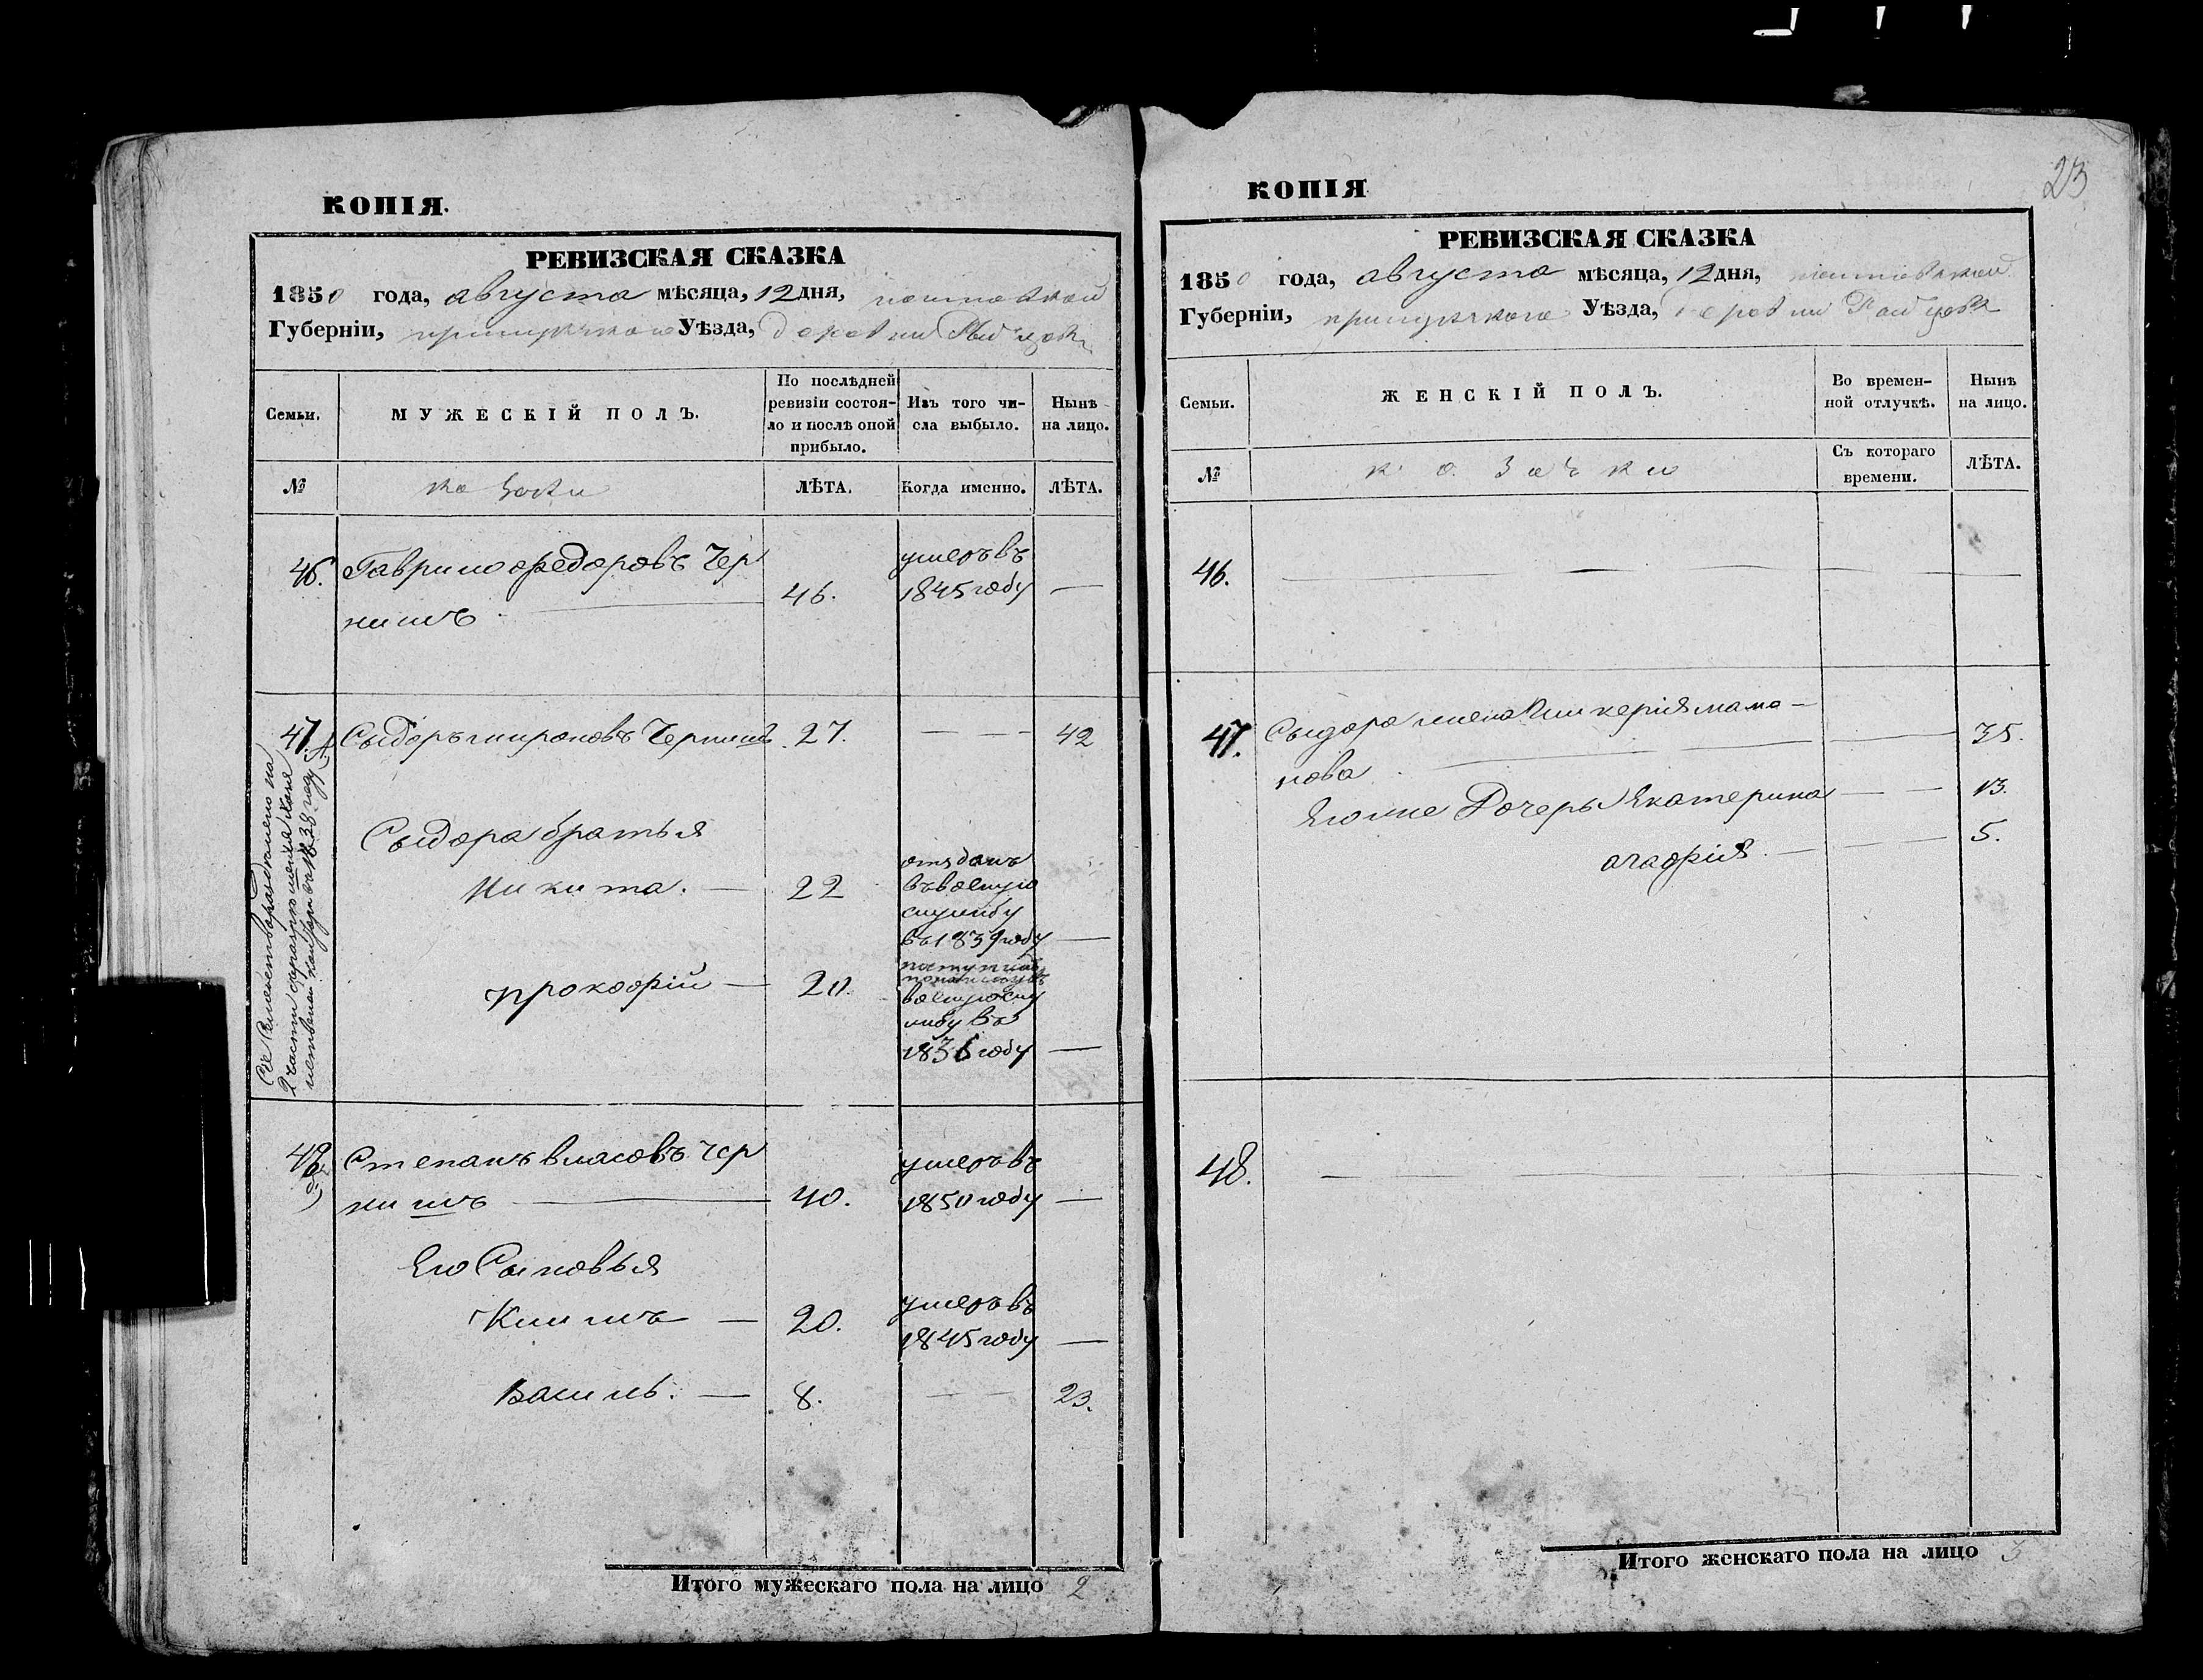 КОПІЯ.
РЕВИЗСКАЯ СКАЗКА
1850 года, августа мѣсяца, 12 дня, полтавской
Губерніи, прилуцкаго Уѣзда, деревни
Семьи.
МУЖЕСКІЙ ПОЛЪ.
По послѣдней
ревизіи состоя-
ло и послѣ оной
прибыло.
Изъ того чи-
сла выбыло.
Нынѣ
на лицо.
№
козаки
ЛѢТА.
Когда именно.
ЛѢТА.
46. Гаврило федоровъ Чер
нишъ 46. умеръ въ
1845 году —
47. Сыдоръ мироновъ Чернишъ 27. — — 42
Сыдора братья
Никита. — 22 отданъ
въ воєнную
службу
въ 1839 году —
прокофій — 20
воєнную слу
жбу въ
1836 году —
48. Степанъ власовъ чер
нишъ 40. умеръ въ
1850 году —
Его Сыновья
Климъ — 20. умеръ въ
1845 году —
Василь. — 8. — 23.
2 части
1838 году
Итого мужескаго пола на лицо 2
23
КОПІЯ
РЕВИЗСКАЯ СКАЗКА
1850 года, августа мѣсяца, 12 дня, полтавской
Губерніи, прилуцкаго Уѣзда, деревни
Семьи.
ЖЕНСКІЙ ПОЛЪ.
Во времен-
ной отлучкѣ.
Нынѣ
на лицо.
№
козачки
Съ котораго
времени.
ЛѢТА.
46. —
47. Сыдора жена Гликерія мама-
нова 35.
Єго же Дочеры Екатерина — — 13.
агафія. — 5.
48. —
Итого женскаго пола на лицо 3